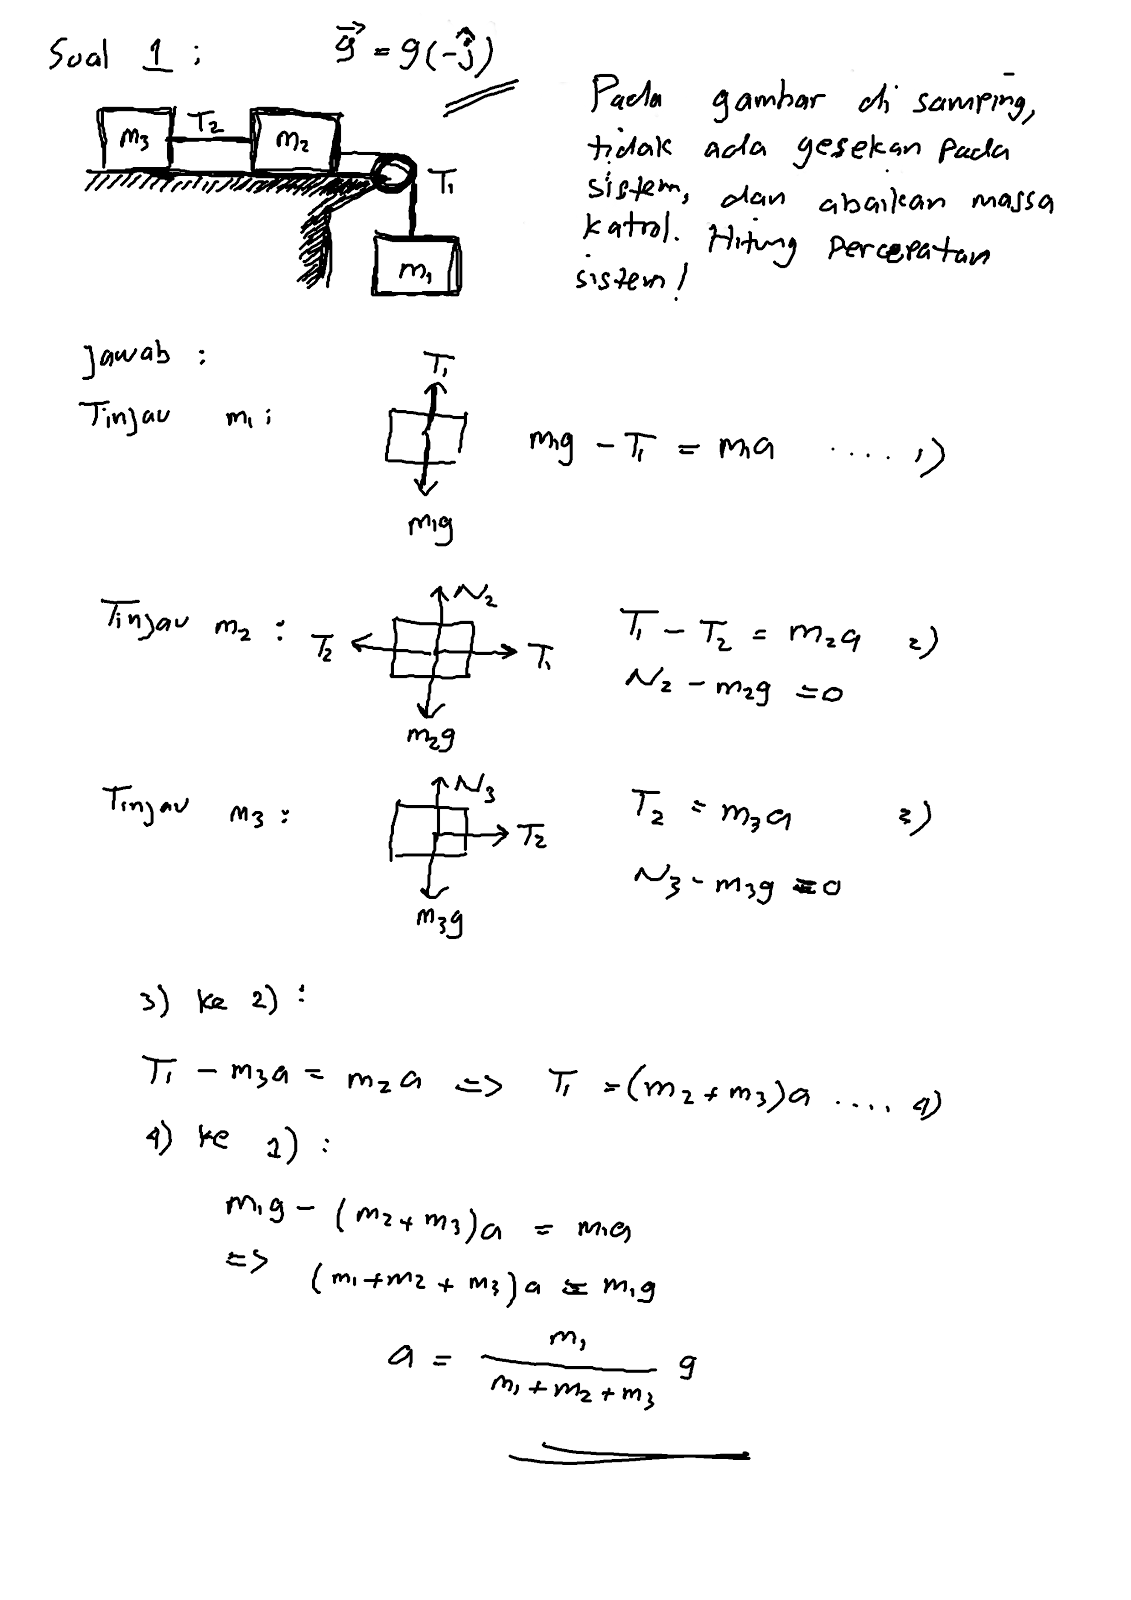 Soal 1 : g⃗ = g(-ĵ)
m3 T2 m2
T1
m1
Pada gambar di samping,
tidak ada gesekan pada
sistem, dan abaikan massa
katrol. Hitung percepatan
sistem!
Jawab :
Tinjau m1 :
T1
m1g
m1g - T1 = m1a .... 1)
Tinjau m2 :
N2
T2 T1
m2g
T1 - T2 = m2a 2)
N2 - m2g = 0
Tinjau m3 :
N3
T2
m3g
T2 = m3a 3)
N3 - m3g = 0
3) ke 2) :
T1 - m3a = m2a => T1 = (m2 + m3)a .... 4)
4) ke 1) :
m1g - (m2 + m3)a = m1a
=> (m1 + m2 + m3)a = m1g
a = m1 / (m1 + m2 + m3) g